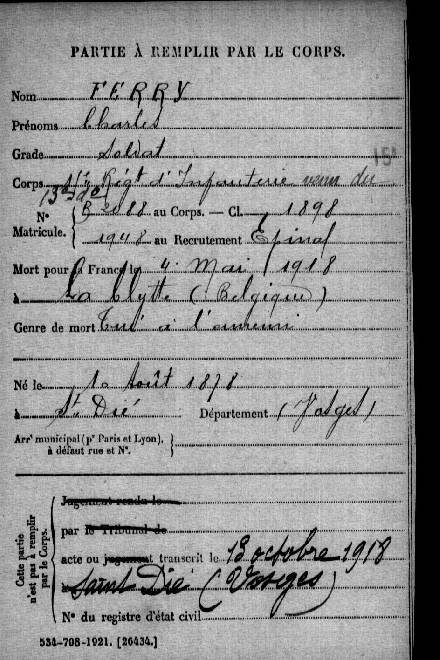 PARTIE À REMPLIR PAR LE CORPS.
Nom FERRY
Prénoms Charles
Grade Soldat
Corps Régt d'Infanterie venu du 15
N° Matricule. 2088 au Corps. — Cl. 1898
1948 au Recutement Epinal
Mort pour la France le 4 Mai 1918
à La Clytte (Belgique)
Genre de mort Tué à l'ennemi
Né le 10 Août 1878
à St Dié Département (Vosges)
Arrt municipal (pr Paris et Lyon),
à défaut rue et N°.
Cette partie n'est pas à remplir par le Corps.
Jugement rendu le
par le Tribunal de
acte ou jugement transcrit le 13 octobre 1918
à Saint Dié (Vosges)
N° du registre d'état civil
534-708-1921. [26434.]